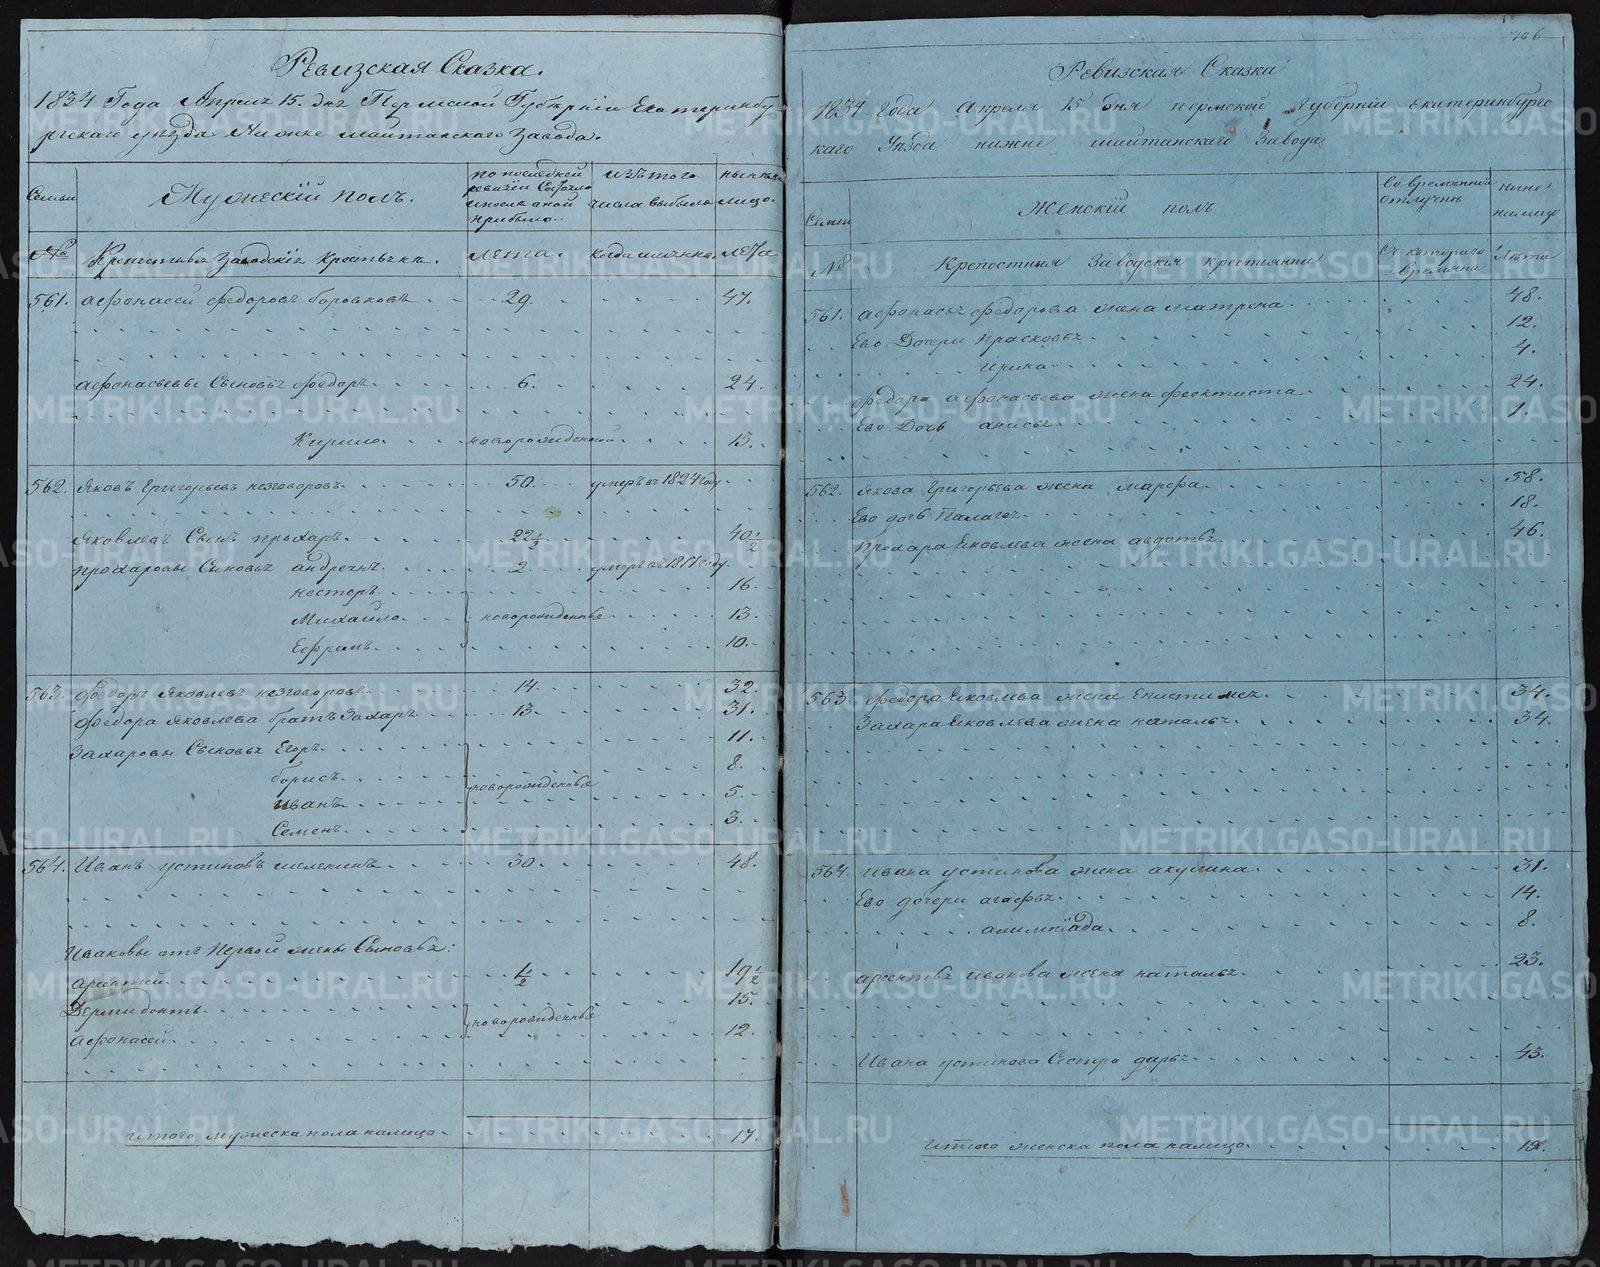 Ревизская Сказка.
1834 Года Апреля 15. дня Пермской Губернiи Екатеринбу
ргскаго уезда Нижне шайтанскаго Завода.
Семьи
Мужескiй полъ.
по последней ревизiи Состояло и после оной прибыло.
изъ того числа выбыло
ныне на лицо.
№
Крепостныя Заводскiя Крестьяня.
лета.
Когда имянно.
лета
561. афонасей федоровъ боровковъ 29. 47.
афонасьевы Сыновья федоръ 6. 24.
Кирило новорожденной 13.
562. Яковъ Григорьевъ незговоровъ 50. умеръ въ 1824 году
Яковлевъ Сынъ прохаръ 22 1/2 40 1/2
прохаровы Сыновья андреянъ 2. умеръ въ 1817 году
нестеръ 16.
Михайло новорожденныя 13.
Ефремъ 10.
563. федоръ Яковлевъ незговоровъ 14. 32.
федора Яковлева братъ Захаръ 13. 31.
Захаровы Сыновья Егоръ 11.
борисъ 8.
иванъ новорожденныя 5.
Семенъ 3.
564. Иванъ устиновъ шелехинъ 30. 48.
Ивановы отъ Первой жены Сыновья:
арсентей 1/2 19 1/2
Дермидонтъ новорожденныя 15.
афонасей 12.
итого мужеска пола налицо 17.
706
Ревизская Сказка
1834 Года апреля 15 дня пермской губернiи екатеринбургс
каго Уезда нижне шайтанскаго Завода
Семьи
Женскiй полъ
во временной отлучке
ныне налицо
№
Крепостныя Заводскiя крестьянки
Съ котораго времяни
Лета
561. афонасья федорова жена матрена 48.
Ево Дочери прасковья 12.
ирина 4.
федора афонасьева жена феоктиста 24.
Ево Дочь анисья 1.
562. Якова Григорьева жена марфа 58.
Ево дочь Палагея 18.
прохара Яковлева жена авдотья 46.
563. федора Яковлева жена Епистимея 34.
Захара Яковлева жена наталья 34.
564. ивана устинова жена акулина 31.
Ево дочери агафья 14.
алимпiада 8.
арсентья иванова жена наталья 23.
Ивана устинова Сестра дарья 43.
итого женска пола налицо 15.
METRIKI.GASO-URAL.RU